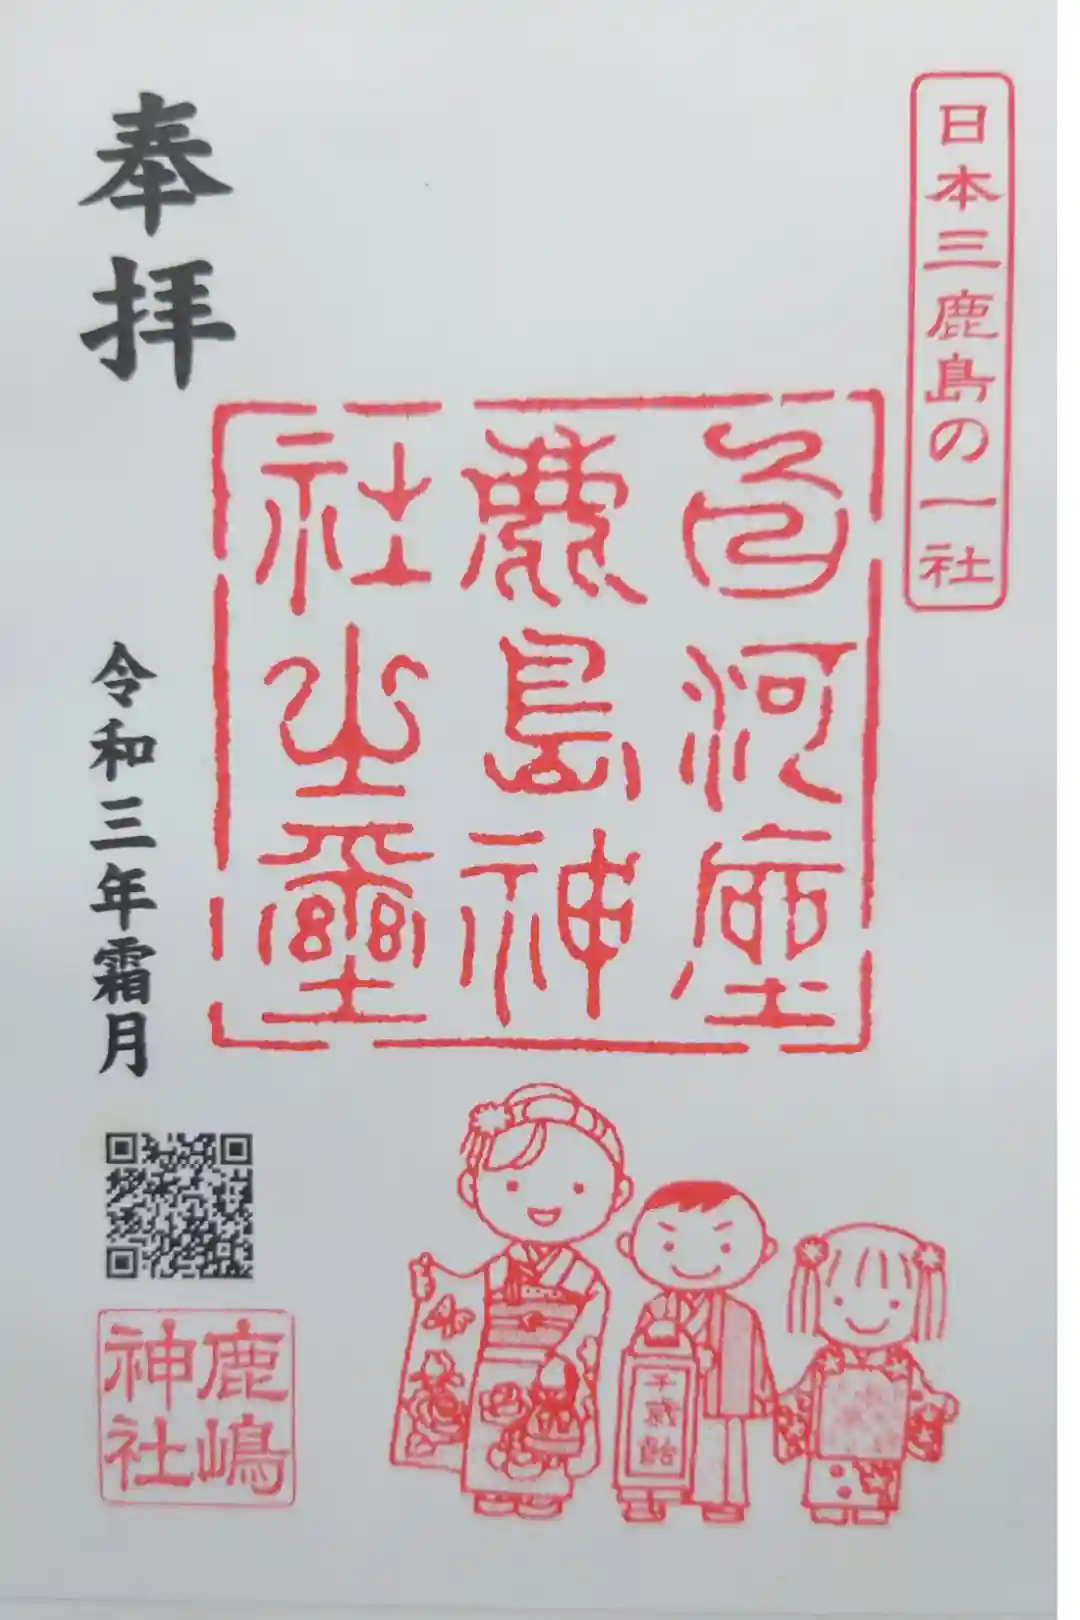 日本三鹿島の一社
色河座
鹿島神
社之璽
奉拝
令和三年霜月
鹿嶋
神社
千歳飴